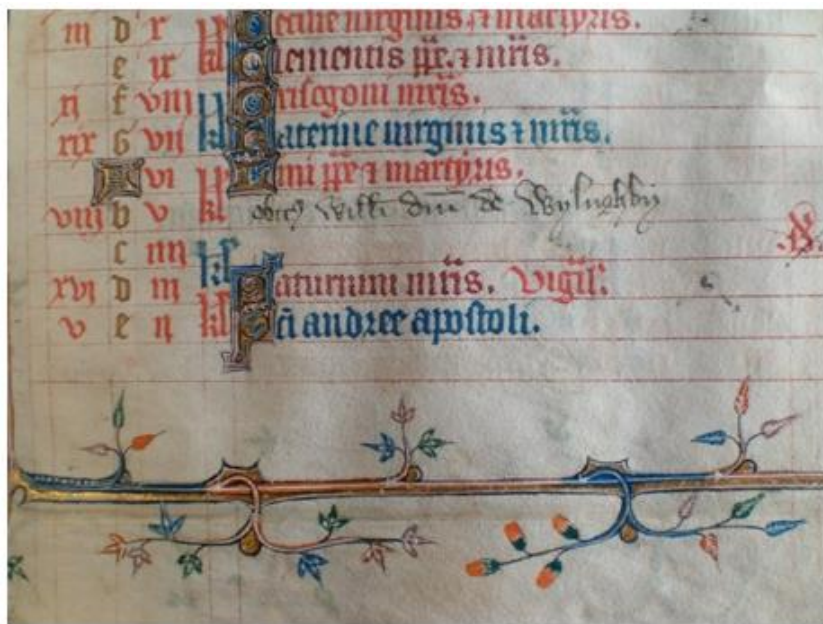 iij d x kl Cecilie virginis et martyris.
e ix kl Clementis pp̄e. ⁊ mr̄is.
xj f viij kl Grisogoni mr̄is.
xix G vij kl Katerine virginis ⁊ mr̄is.
A vi kl Lini pp̄e ⁊ martyris.
viij b v kl obitꝰ Willi dnī de Wylughby
c iiij kl
xvj d iij kl Saturnini mr̄is. Vigil'.
v e ij kl Sc̄i andree apostoli.